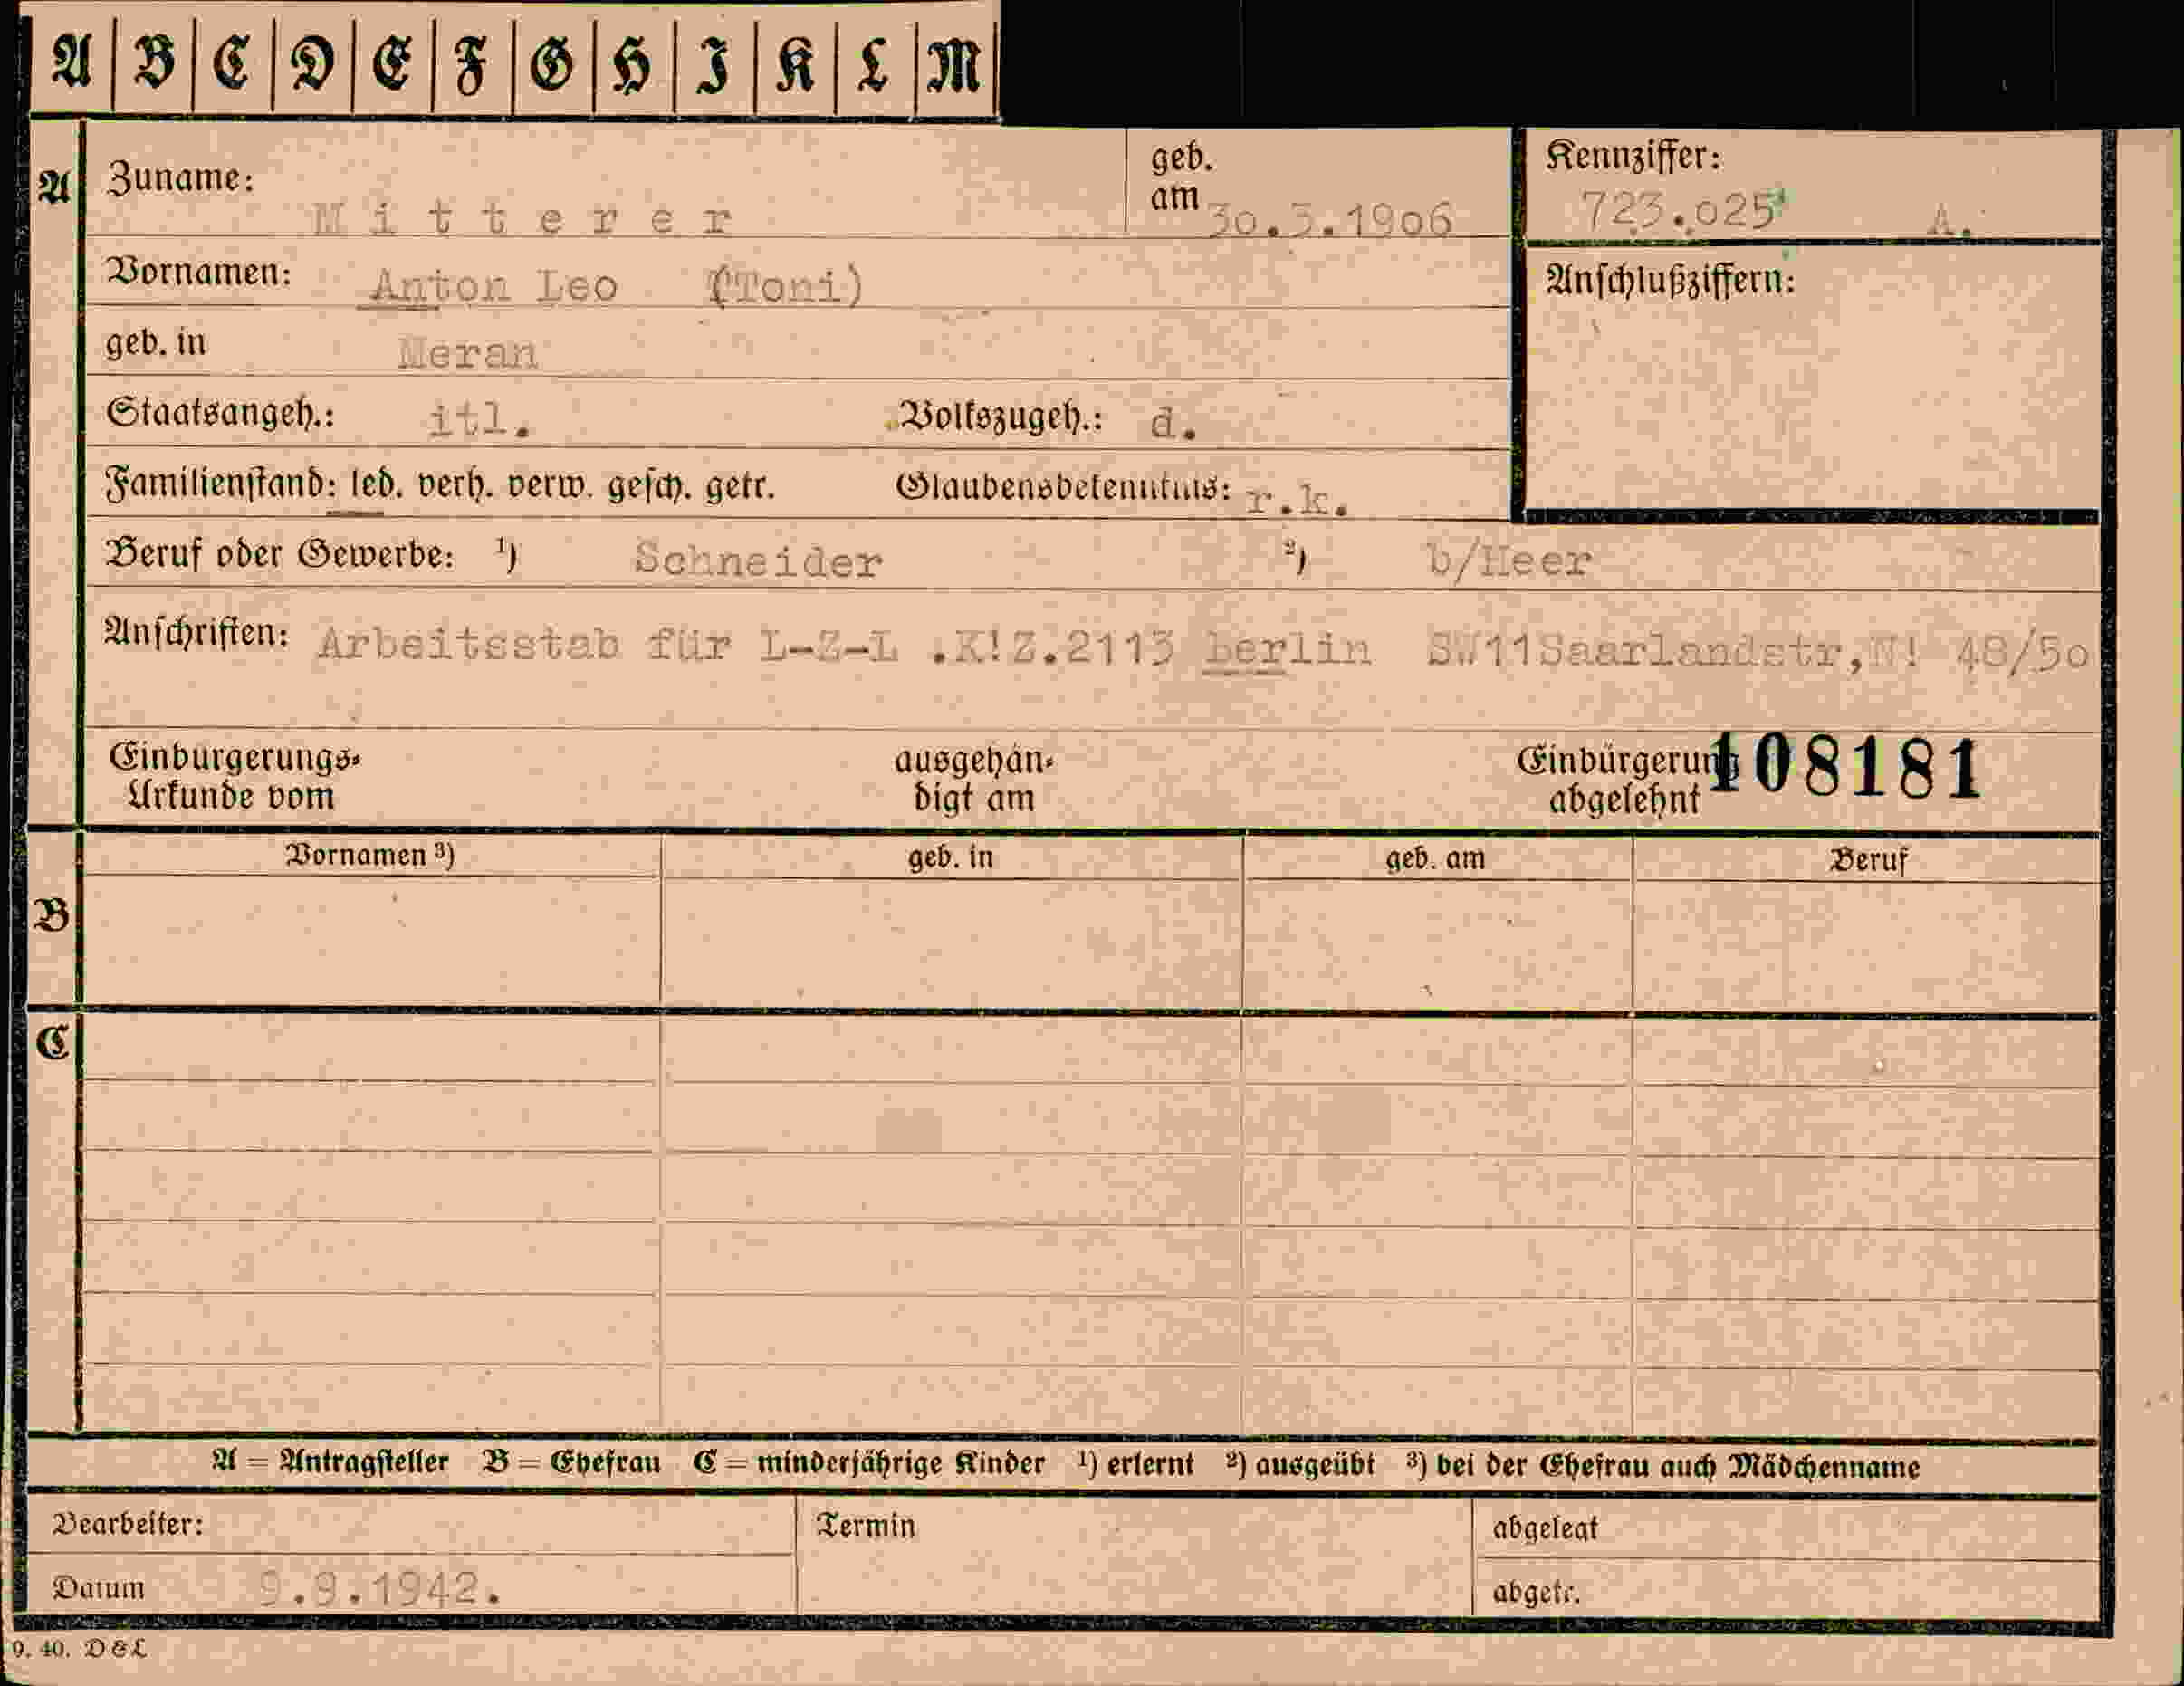 A B C D E F G H I K L M
A Zuname: Mitterer geb. am 30.3.1906 Kennziffer: 723.025 A.
Vornamen: Anton Leo (Toni) Anschlußziffern:
geb. in Meran
Staatsangeh.: itl. Volkszugeh.: d.
Familienstand: led. verh. verw. gesch. getr. Glaubensbekenntnis: r.k.
Beruf oder Gewerbe: ¹) Schneider ²) b/Heer
Anschriften: Arbeitsstab für L-Z-L .K!Z.2113 berlin SW11Saarlandstr,N! 48/50
Einbürgerungs-
Urkunde vom
ausgehän-
digt am
Einbürgerung
abgelehnt
108181
Vornamen ³) geb. in geb. am Beruf
B
C
A = Antragsteller B = Ehefrau C = minderjährige Kinder ¹) erlernt ²) ausgeübt ³) bei der Ehefrau auch Mädchenname
Bearbeiter: Termin abgelegt
Datum 9.9.1942. abgetr.
9. 40. D & L